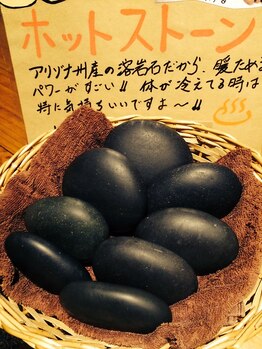 ホットストーン
アリゾナ州産の溶岩石だから、暖ため
パワーがすごい!! 体が冷えてる時は
特に気持ちいいですよ～!!